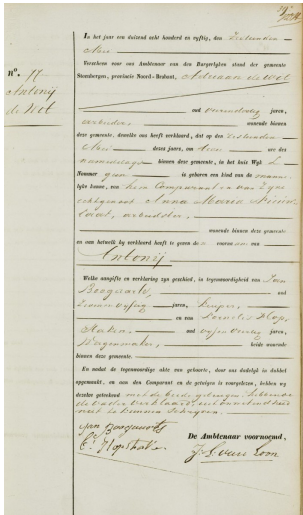 In het jaar een duizend acht honderd en vyftig, den Zestienden
Mei
Verscheen voor ons Ambtenaar van den Burgerlyken stand der gemeente
Steenbergen, provincie Noord-Braband, Adriaan de Wit
n°. 17
Antonij
de Wit
oud jaren,
arbeider wonende binnen
deze gemeente, dewelke ons heeft verklaard, dat op den Zestienden
Mei dezes jaars, om ure des
namiddags binnen deze gemeente, in het huis Wyk
Nummer geen is geboren een kind van de manne-
lyke kunne, van hem Comparant en van zyne
echtgenoot Anna Maria
arbeidster,
wonende binnen deze gemeente
en aan hetwelk hy verklaard heeft te geven de voornaam van
Antonij
Welke aangifte en verklaring zyn geschied, in tegenwoordigheid van Jan
Boogaarts,
jaren, Kuiper,
en van Cornelis Hop-
staken, oud vyfenveertig jaren,
Wagenmaker, beide wonende
binnen deze gemeente.
En nadat de tegenwoordige akte van geboorte, door ons dadelyk in dubbel
opgemaakt, en aan den Comparant en de getuigen is voorgelezen, hebben wy
dezelve geteekend met de beide getuigen, hebbende
de vader verklaard
niet te kunnen schryven.
Jan Boogaarts
C. Hopstaken
De Ambtenaar voornoemd,
J. S. van Loon